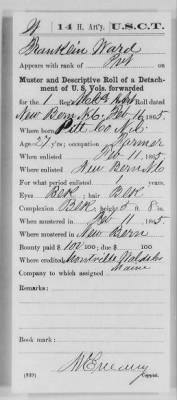 W 14 H. Art'y. U.S.C.T.
Franklin Ward
Appears with rank of Pvt on
Muster and Descriptive Roll of a Detach-
ment of U. S. Vols. forwarded
for the 1 Reg't Roll dated
New Bern N.C. Feb 16, 1865
Where born Pitt Co N.C.
Age 27 y'rs; occupation Farmer
When enlisted Feb 11, 1865
Where enlisted New Bern N.C.
For what period enlisted 1 years.
Eyes Blk; hair Blk
Complexion Blk; height 5 ft. 8 in.
When mustered in Feb 11, 1865
Where mustered in New Bern
Bounty paid $ 100 100; due $ 100
Where credited Montville Waldo Co
Maine
Company to which assigned
Remarks:
Book mark:
(339) Copyist.